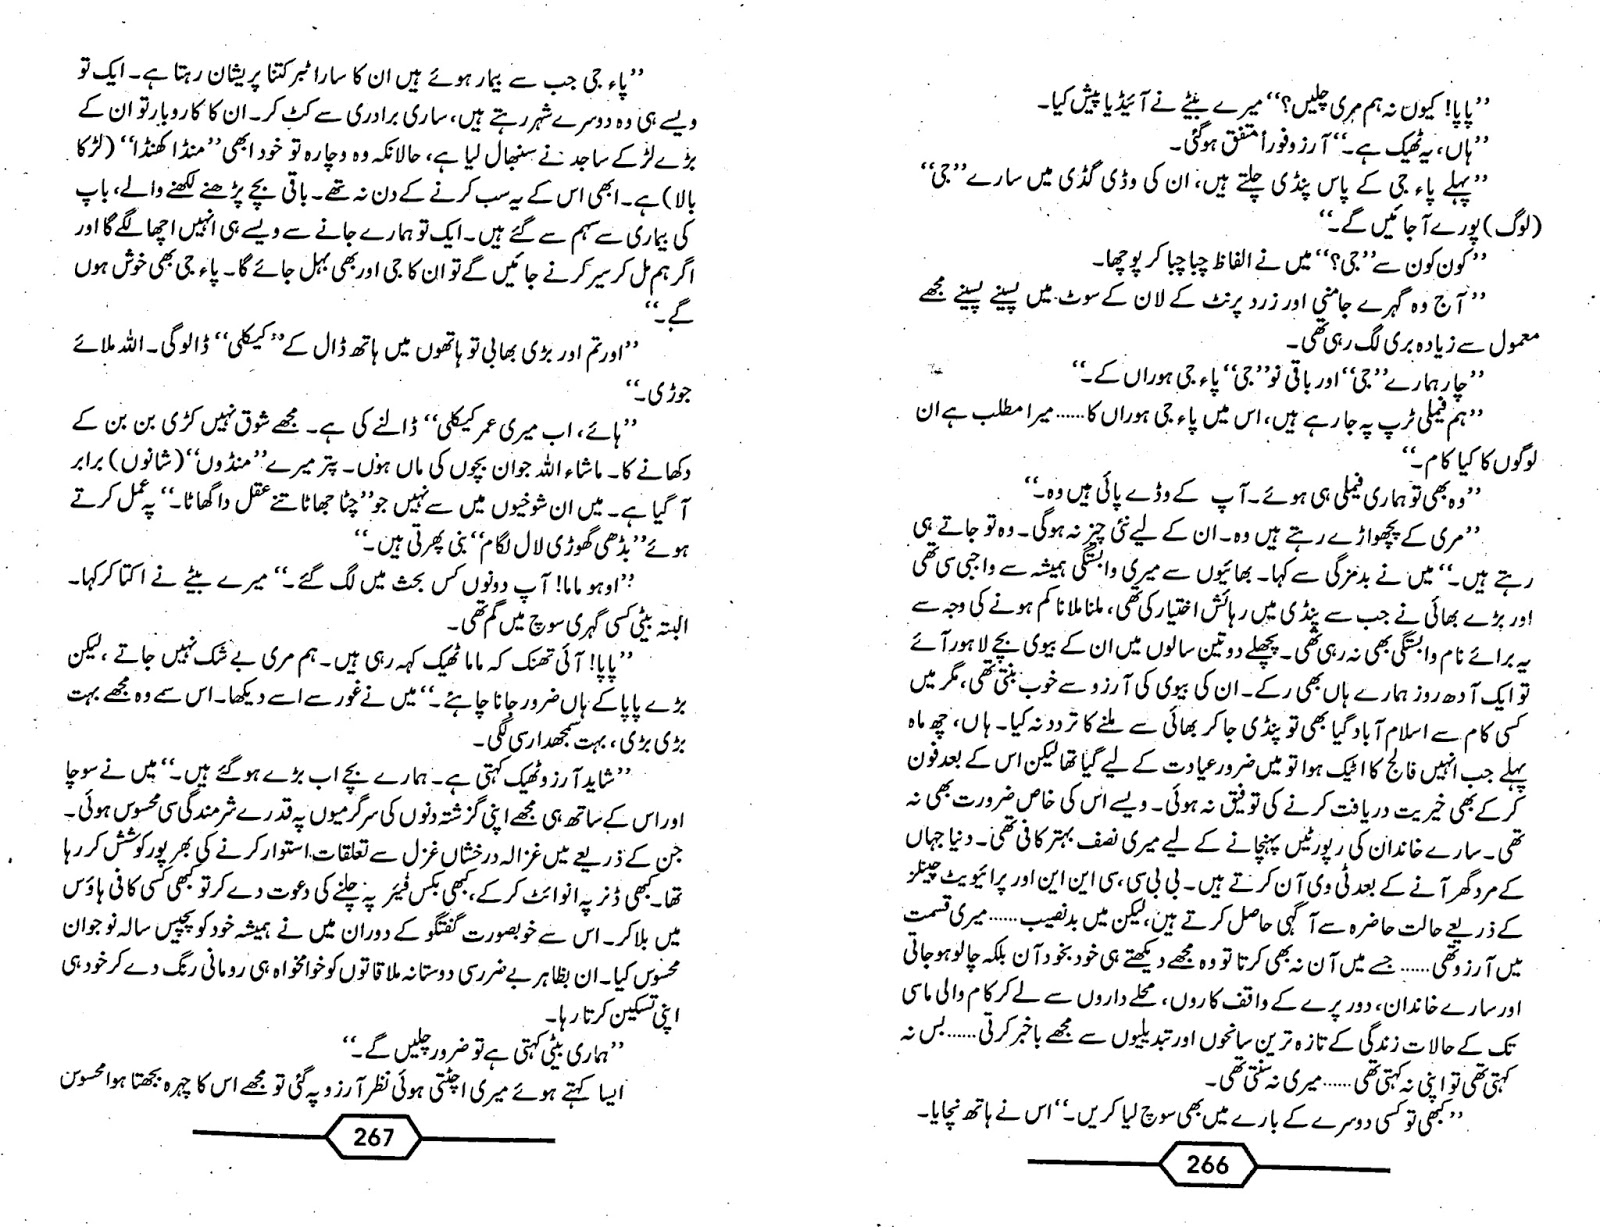 ”پاپا! کیوں نہ ہم مری چلیں؟“ میرے بیٹے نے آئیڈیا پیش کیا۔
”ہاں، یہ ٹھیک ہے۔“ آرزو فوراً متفق ہوگئی۔
”پہلے پاء جی کے پاس پنڈی چلتے ہیں، ان کی وڈی گڈی میں سارے ”جی“
(لوگ) پورے آ جائیں گے۔“
”کون کون سے ”جی؟“ میں نے الفاظ چبا چبا کر پوچھا۔
”آج وہ گہرے جامنی اور زرد پرنٹ کے لان کے سوٹ میں پسینے پسینے مجھے
معمول سے زیادہ بری لگ رہی تھی۔
”چار ہمارے ”جی“ اور باقی نو ”جی“ پاء جی ہوراں کے۔“
”ہم فیملی ٹرپ پہ جا رہے ہیں، اس میں پاء جی ہوراں کا...... میرا مطلب ہے ان
لوگوں کا کیا کام۔“
”وہ بھی تو ہماری فیملی ہی ہوئے۔ آپ کے وڈے پائی ہیں وہ۔“
”مری کے پچھواڑے رہتے ہیں وہ۔ ان کے لیے نئی چیز نہ ہوگی۔ وہ تو جاتے ہی
رہتے ہیں۔“ میں نے بدمزگی سے کہا۔ بھائیوں سے میری وابستگی ہمیشہ سے واجبی سی تھی
اور بڑے بھائی نے جب سے پنڈی میں رہائش اختیار کی تھی، ملنا ملانا کم ہونے کی وجہ سے
یہ برائے نام وابستگی بھی نہ رہی تھی۔ پچھلے دو تین سالوں میں ان کے بیوی بچے لاہور آئے
تو ایک آدھ روز ہمارے ہاں بھی رکے۔ ان کی بیوی کی آرزو سے خوب بنتی تھی، مگر میں
کسی کام سے اسلام آباد گیا بھی تو پنڈی جا کر بھائی سے ملنے کا تردد نہ کیا۔ ہاں، چھ ماہ
پہلے جب انہیں فالج کا اٹیک ہوا تو میں ضرور عیادت کے لیے گیا تھا لیکن اس کے بعد فون
کر کے بھی خیریت دریافت کرنے کی توفیق نہ ہوئی۔ ویسے اس کی خاص ضرورت بھی نہ
تھی۔ سارے خاندان کی رپورٹیں پہنچانے کے لیے میری نصف بہتر کافی تھی۔ دنیا جہاں
کے مرد گھر آنے کے بعد ٹی وی آن کرتے ہیں۔ بی بی سی، سی این این اور پرائیویٹ چینلز
کے ذریعے حالت حاضرہ سے آگہی حاصل کرتے ہیں، لیکن میں بدنصیب...... میری قسمت
میں آرزو تھی...... جسے میں آن نہ بھی کرتا تو وہ مجھے دیکھتے ہی خود بخود آن بلکہ چالو ہو جاتی
اور سارے خاندان، دور پرے کے واقف کاروں، محلے داروں سے لے کر کام والی ماسی
تک کے حالات زندگی کے تازہ ترین سانحوں اور تبدیلیوں سے مجھے باخبر کرتی...... بس نہ
کہتی تھی تو اپنی نہ کہتی تھی...... میری نہ سنتی تھی۔
”کبھی تو کسی دوسرے کے بارے میں بھی سوچ لیا کریں۔“ اس نے ہاتھ نچایا۔
266
”پاء جی جب سے بیمار ہوئے ہیں ان کا سارا ٹبر کتنا پریشان رہتا ہے۔ ایک تو
ویسے ہی وہ دوسرے شہر رہتے ہیں، ساری برادری سے کٹ کر۔ ان کا کاروبار تو ان کے
بڑے لڑکے ساجد نے سنبھال لیا ہے، حالانکہ وہ وچارہ تو خود ابھی ”منڈا کھنڈا“ (لڑکا
بالا) ہے۔ ابھی اس کے یہ سب کرنے کے دن نہ تھے۔ باقی بچے پڑھنے لکھنے والے، باپ
کی بیماری سے سہم سے گئے ہیں۔ ایک تو ہمارے جانے سے ویسے ہی انہیں اچھا لگے گا اور
اگر ہم مل کر سیر کرنے جائیں گے تو ان کا جی اور بھی بہل جائے گا۔ پاء جی بھی خوش ہوں
گے۔“
”اور تم اور بڑی بھابی تو ہاتھوں میں ہاتھ ڈال کے ”کیکلی“ ڈالو گی۔ اللہ ملائے
جوڑی۔“
”ہائے، اب میری عمر کیکلی“ ڈالنے کی ہے۔ مجھے شوق نہیں کڑی بن بن کے
دکھانے کا۔ ماشاء اللہ جوان بچوں کی ماں ہوں۔ پتر میرے ”منڈوں“ (شانوں) برابر
آ گیا ہے۔ میں ان شوخیوں میں سے نہیں جو ”چٹا جھاٹا تے عقل دا گھاٹا۔“ پہ عمل کرتے
ہوئے ”بڈھی گھوڑی لال لگام“ بنی پھرتی ہیں۔“
”اوہو ماما! آپ دونوں کس بحث میں لگ گئے۔“ میرے بیٹے نے اکتا کر کہا۔
البتہ بیٹی کسی گہری سوچ میں گم تھی۔
”پاپا! آئی تھنک کہ ماما ٹھیک کہہ رہی ہیں۔ ہم مری بے شک نہیں جاتے، لیکن
بڑے پاپا کے ہاں ضرور جانا چاہئے۔“ میں نے غور سے اسے دیکھا۔ اس سمے وہ مجھے بہت
بڑی بڑی، بہت سمجھدار سی لگی۔
”شاید آرزو ٹھیک کہتی ہے۔ ہمارے بچے اب بڑے ہو گئے ہیں۔“ میں نے سوچا
اور اس کے ساتھ ہی مجھے اپنی گزشتہ دنوں کی سرگرمیوں پہ قدرے شرمندگی سی محسوس ہوئی۔
جن کے ذریعے میں غزالہ درخشاں غزل سے تعلقات استوار کرنے کی بھرپور کوشش کر رہا
تھا۔ کبھی ڈنر پہ انوائٹ کر کے، کبھی بکس فیئر پہ چلنے کی دعوت دے کر تو کبھی کسی کافی ہاؤس
میں بلا کر۔ اس سے خوبصورت گفتگو کے دوران میں نے ہمیشہ خود کو پچیس سالہ نوجوان
محسوس کیا۔ ان بظاہر بے ضرر سی دوستانہ ملاقاتوں کو خوامخواہ ہی رومانی رنگ دے کر خود ہی
اپنی تسکین کرتا رہا۔
”ہماری بیٹی کہتی ہے تو ضرور چلیں گے۔“
ایسا کہتے ہوئے میری اچٹتی ہوئی نظر آرزو پہ گئی تو مجھے اس کا چہرہ بجھتا ہوا محسوس
267